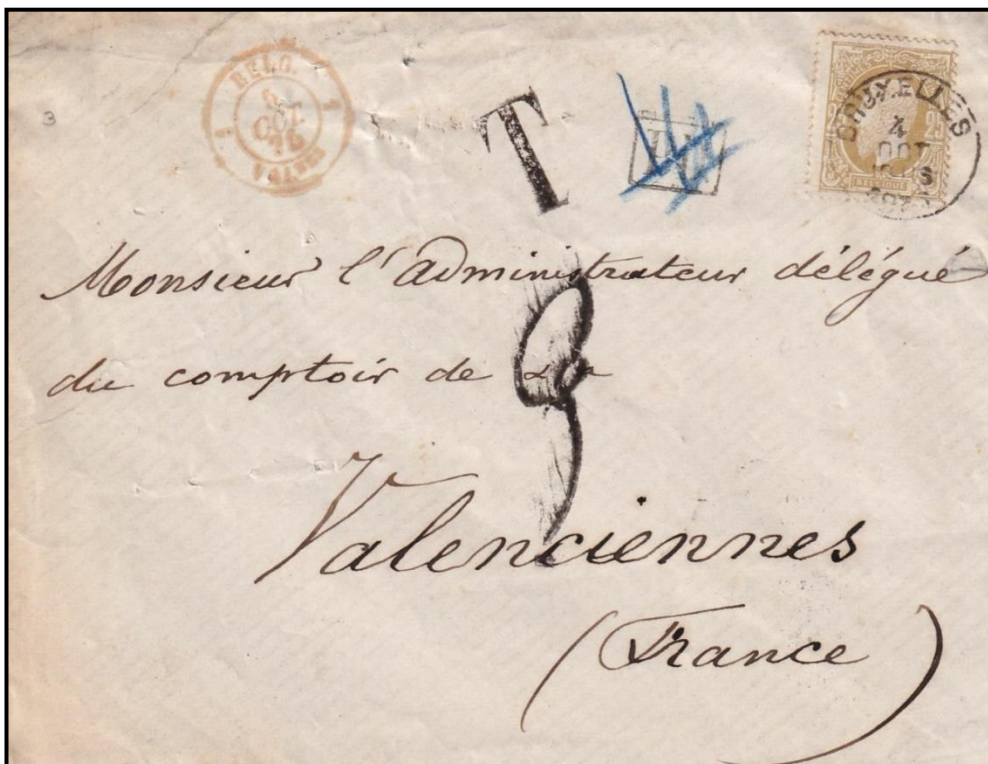 BELG. 1
OCT.
76
VALnes
3
T
BRUXELLES
4
OCT
25
BELGIQUE
Monsieur l'administrateur délégué
du comptoir de
Valenciennes
(France)